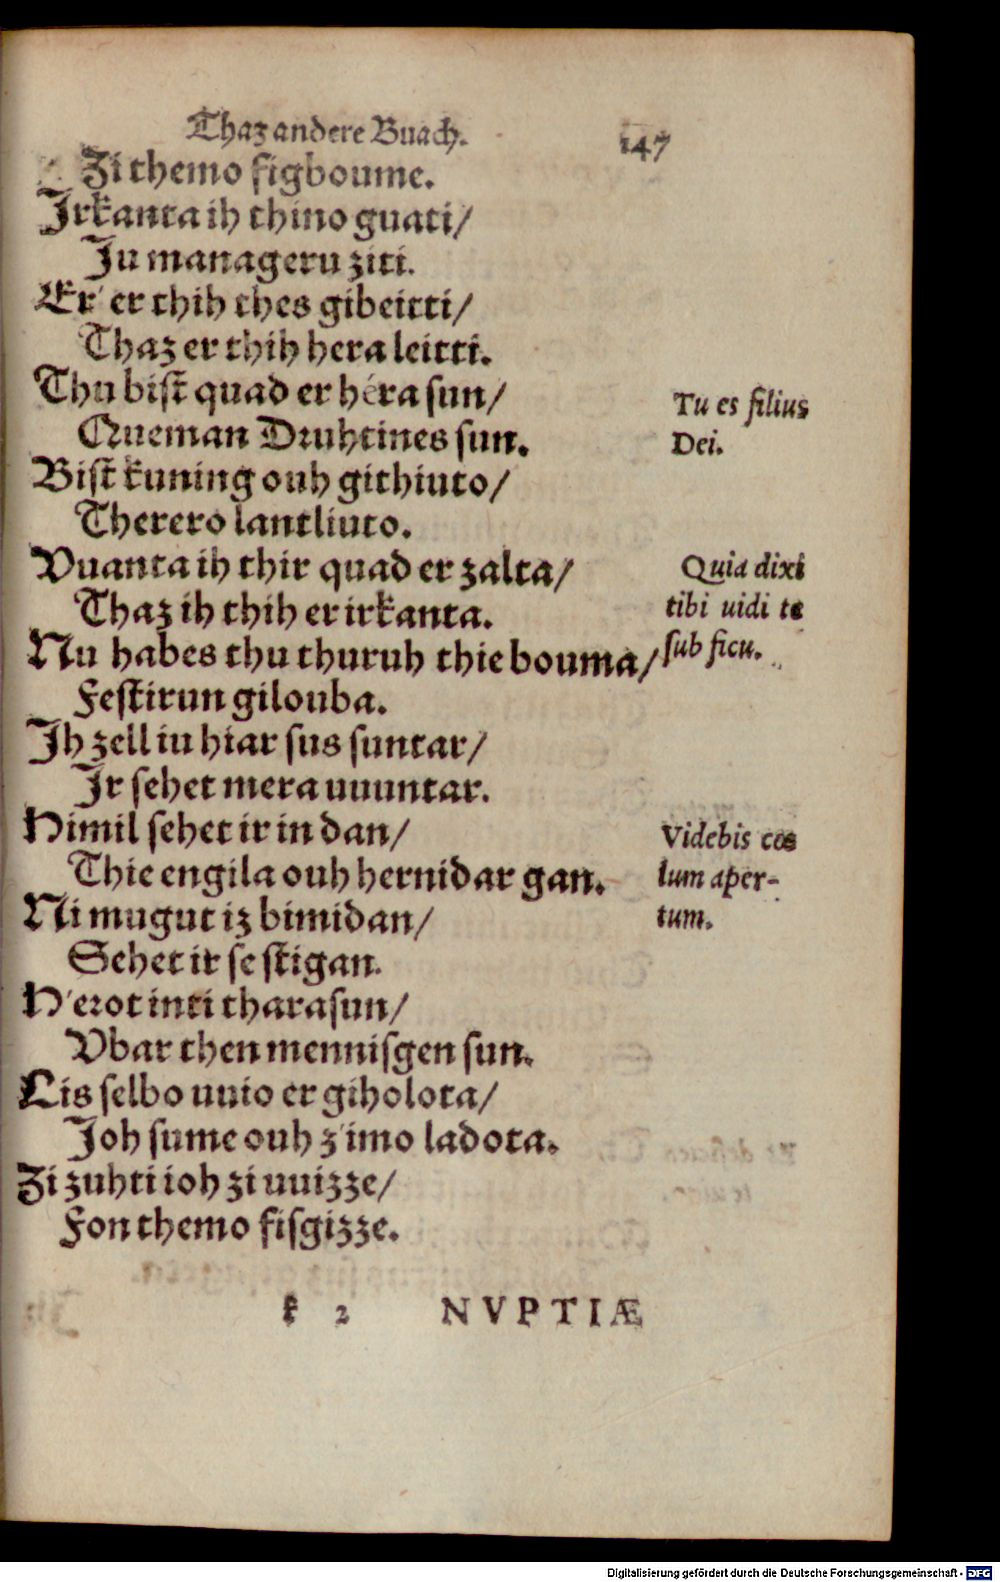 Thaz andere Buach. 147
Zi themo figboume.
Irkanta ih thino guati/
Iu manageru ziti.
Er' er thih thes gibeitti/
Thaz er thih hera leitti.
Thu bist quad er héra sun/
Queman Druhtines sun.
Tu es filius
Dei.
Bist kuning ouh githiuto/
Therero lantliuto.
Vuanta ih thir quad er zalta/
Thaz ih thih er irkanta.
Quia dixi
tibi uidi te
sub ficu.
Nu habes thu thuruh thie bouma/
Festirun gilouba.
Ih zell iu hiar sus suntar/
Ir sehet mera uuuntar.
Himil sehet ir indan/
Thie engila ouh hernidar gan.
Videbis cœ
lum aper-
tum.
Ni mugut iz bimidan/
Sehet ir se stigan.
H'erot inti tharasun/
Vbar then mennisgen sun.
Lis selbo uuio er giholota/
Ioh sume ouh z'imo ladota.
Zi zuhti ioh zi uuizze/
Fon themo fisgizze.
k 2 NVPTIÆ
Digitalisierung gefördert durch die Deutsche Forschungsgemeinschaft - DFG